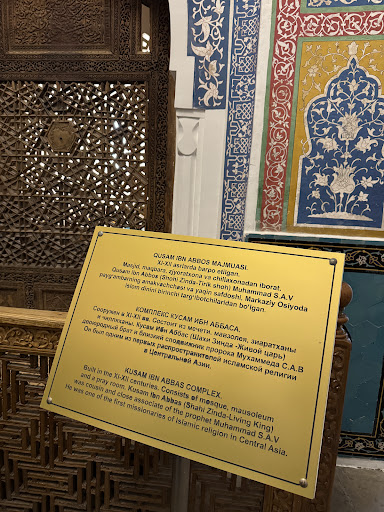 QUSAM IBN ABBOS MAJMUASI.
XI-XII asrlarda barpo etilgan.
Masjid, maqbara, ziyoratxona va chillaxonadan iborat.
Qusam ibn Abbos (Shohi Zinda-Tirik shoh) Muhammad S.A.V
payg'ambarning amakivachchasi va yaqin safdoshi. Markaziy Osiyoda
islom dinini birinchi targ'ibotchilaridan bo'lgan.
КОМПЛЕКС КУСАМ ИБН АББАСА.
Сооружен в XI-XII вв. Состоит из мечети, мавзолея, зиаратханы
и чиллаханы. Кусам Ибн Аббас (Шахи Зинда -Живой царь)
двоюродный брат и близкий сподвижник пророка Мухаммеда С.А.В
Он был одним из первых распространителей исламской религии
в Центральной Азии.
KUSAM IBN ABBAS COMPLEX.
Built in the XI-XII centuries. Consists of mosque, mausoleum
and a pray room. Kusam Ibn Abbas (Shahi Zinda-Living King)
was cousin and close associate of the prophet Muhammad S.A.V
He was one of the first missionaries of Islamic religion in Central Asia.